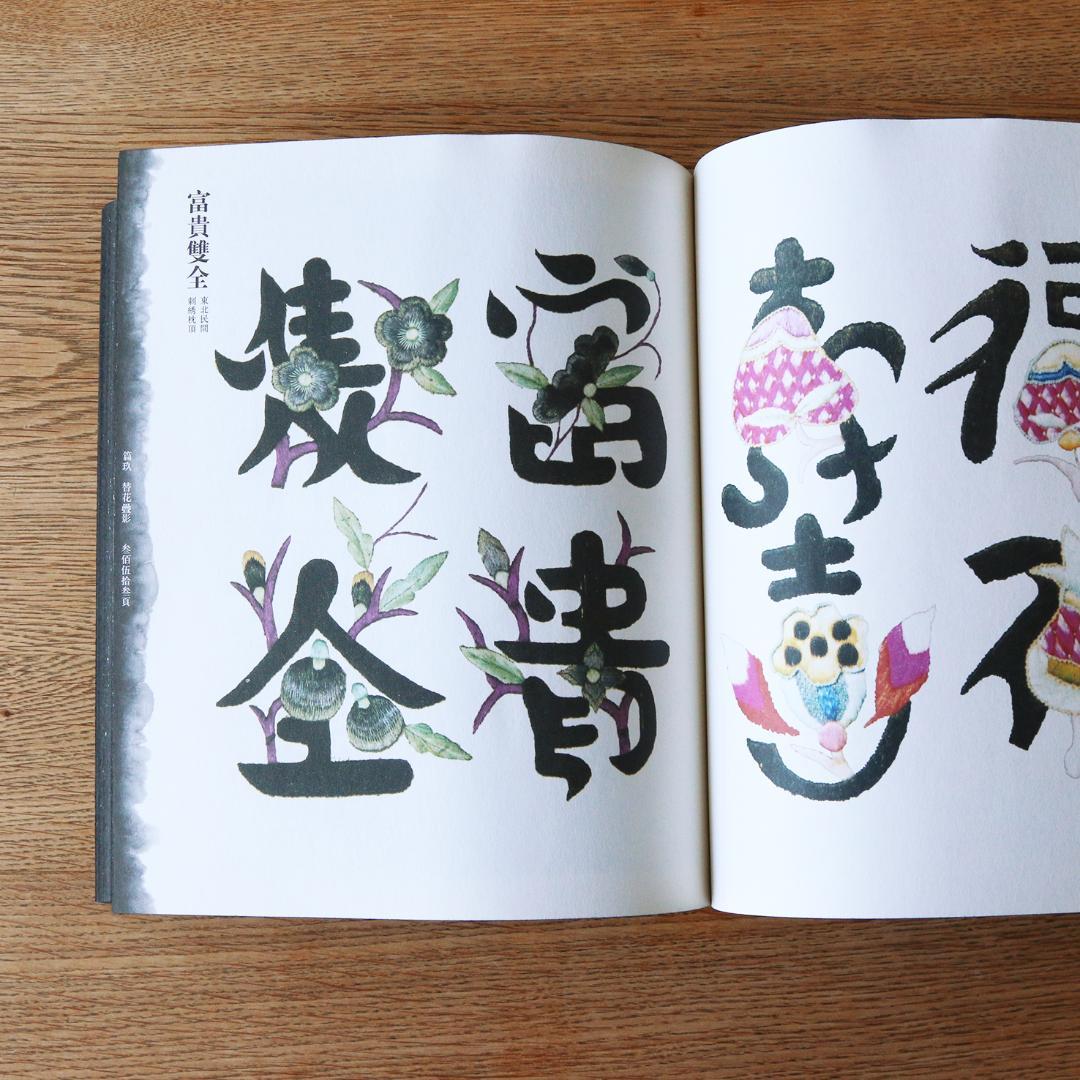 富貴雙全
東北民間
刺綉枕頂
富貴
雙全
篇玖 替花影 叁佰伍拾叁頁
壽